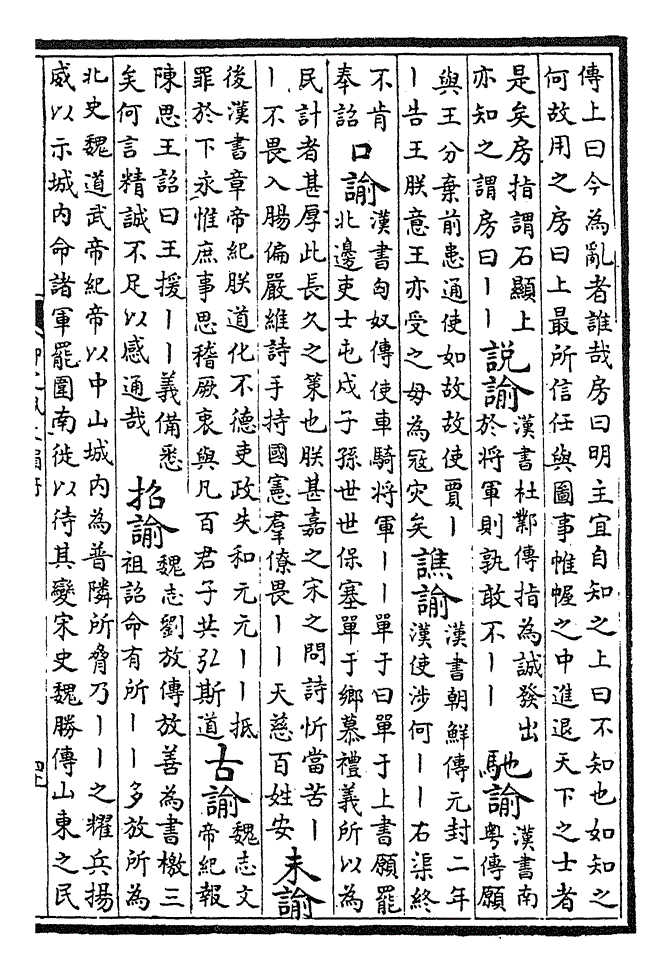 傳上曰今為亂者誰哉房曰明主宜自知之上曰不知也如知之
何故用之房曰上最所信任與圖事帷幄之中進退天下之士者
是矣房指謂石顯上
亦知之謂房曰丨丨
說諭
漢書杜鄴傳指為誠發出
於將軍則孰敢不丨丨
馳諭
漢書南
粤傳願
與王分棄前患通使如故故使賈丨
丨告王朕意王亦受之毋為寇灾矣
譙諭
漢書朝鮮傳元封二年
漢使涉何丨丨右渠終
不肯
奉詔
口諭
漢書匈奴傳使車騎將軍丨丨單于曰單于上書願罷
北邊吏士屯戍子孫世世保塞單于鄉慕禮義所以為
民計者甚厚此長久之策也朕甚嘉之宋之問詩忻當苦丨
丨不畏入腸偏嚴維詩手持國憲羣僚畏丨丨天慈百姓安
未諭
後漢書章帝紀朕道化不德吏政失和元元丨丨抵
罪於下永惟庶事思稽厥衷與凡百君子共弘斯道
古諭
魏志文
帝紀報
陳思王詔曰王援丨丨義備悉
矣何言精誠不足以感通哉
招諭
魏志劉放傳放善為書檄三
祖詔命有所丨丨多放所為
北史魏道武帝紀帝以中山城内為普隣所脅乃丨丨之耀兵揚
威以示城内命諸軍罷圍南徙以待其變宋史魏勝傳山東之民